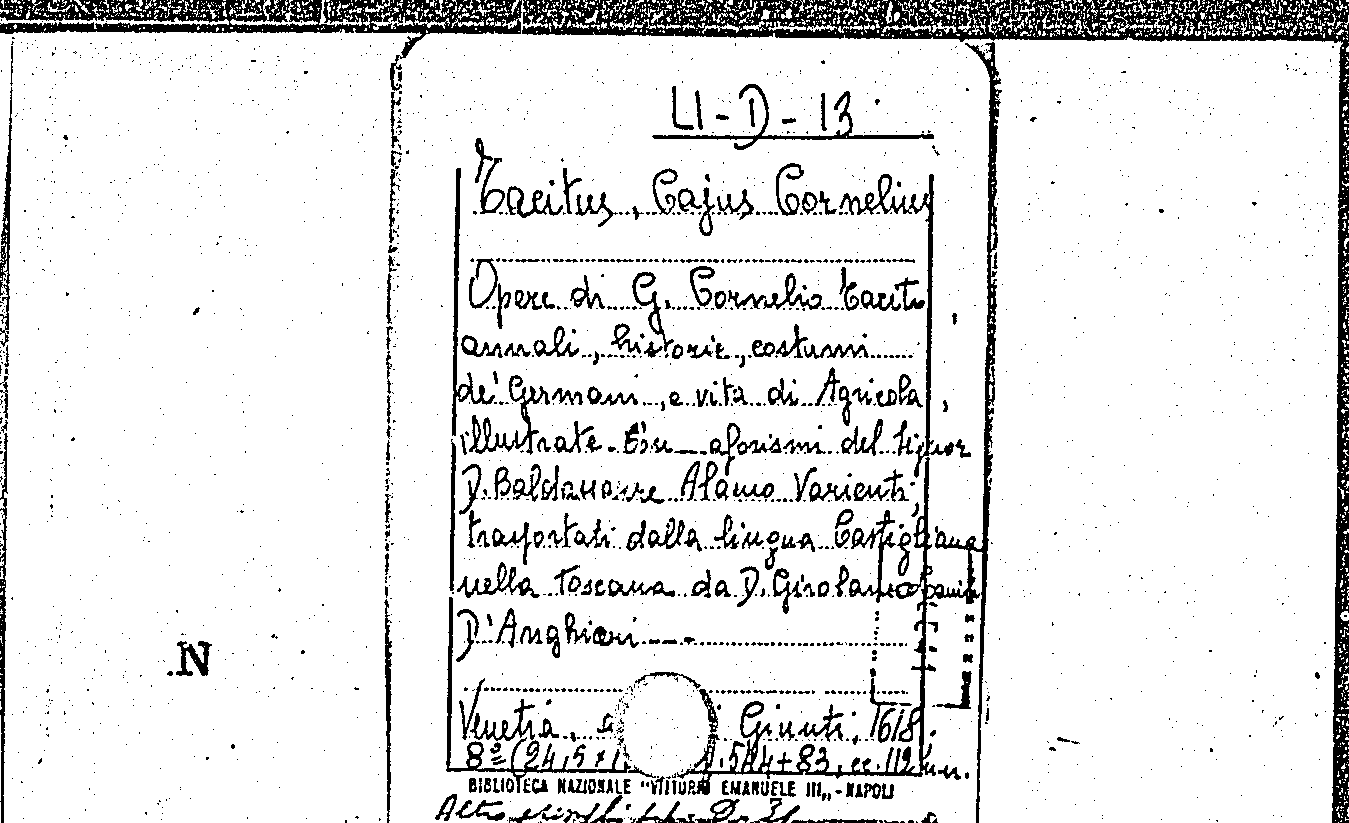 LI-D-13
Tacitus, Cajus Cornelius
Opere di G. Cornelio Tacito
annali, historie, costumi
de' Germani, e vita di Agricola,
illustrate. aforismi del signor
D. Baldassarre Alamo Varienti,
trasportati dalla lingua Castigliana
nella Toscana da D. Girolamo
D'Anghiari ---
.N
Venetia, Giunti, 1618.
8º (24,5 x 544+83, cc. 112 n.n.
BIBLIOTECA NAZIONALE "VITTORIO EMANUELE III„ - NAPOLI